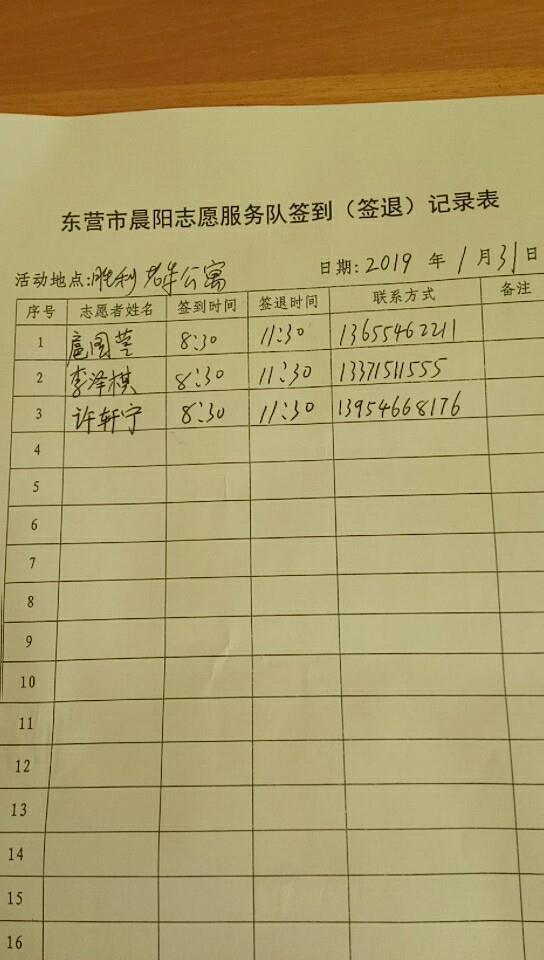 东营市晨阳志愿服务队签到（签退）记录表
活动地点:胜利老年公寓 日期:2019 年 1 月 31 日
序号 志愿者姓名 签到时间 签退时间 联系方式 备注
1 扈国莹 8:30 11:30 13655462211
2 李泽棋 8:30 11:30 13371511555
3 许轩宁 8:30 11:30 13954668176
4
5
6
7
8
9
10
11
12
13
14
15
16